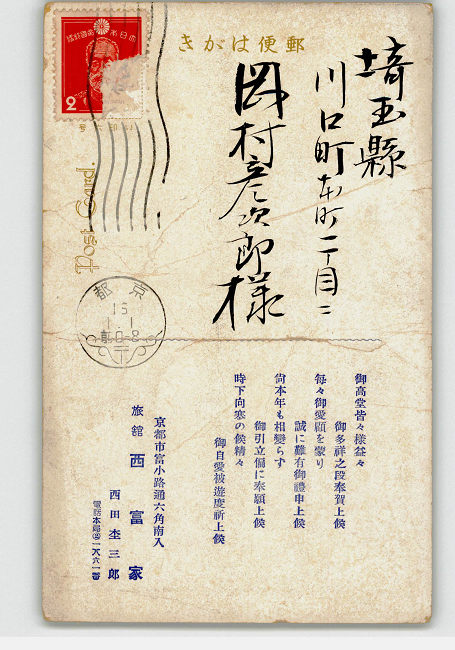 郵便はがき
埼玉縣
川口町本町一丁目二
岡村彦次郎様
御高堂皆々様益々
御多祥之段奉賀上候
毎々御愛顧を蒙り
誠に難有御禮申上候
尙本年も相變らず
御引立偏に奉願上候
時下向寒の候精々
御自愛被遊度祈上候
京都市富小路通六角南入
旅舘 西富家
西田奎三郎
電話本局②一八六一番
Post Card.
2
京都
15
1.1
前0-8